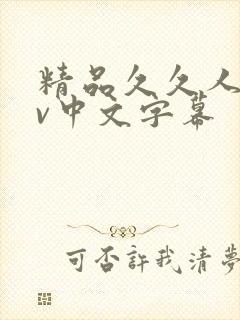 精品久久人
v中文字幕
可否許我清夢